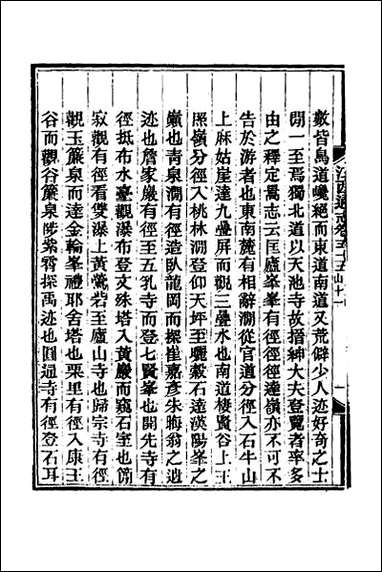 數皆鳥道巉絕而東道南道又荒僻少人迹好奇之士
閒一至焉獨北道以天池寺故搢紳大夫登覽者率多
由之釋定暠志云匡廬峯峯有徑徑徑達嶺亦不可不
告於游者也東南麓有相辭澗從官道分徑入石牛山
上麻姑崖達九疊屏而觀三疊水也南道棲賢谷上王
照嶺分徑入桃林澗登仰天坪至驪縠石達漢陽峯之
巔也靑泉澗有徑造臥龍岡而探崔嘉彥朱晦翁之遊
迹也詹家巖有徑至五乳寺而登七賢峯也開先寺有
徑抵布水臺觀瀑布登文殊塔入黃巖而窺石室也傍
寂觀有徑看雙瀑上黃嵓若至廬山寺也歸宗寺有徑
觀玉簾泉而達金輪峯禮耶舍塔也栗里有徑入康王
谷而觀谷簾泉陟紫霄探禹迹也圓通寺有徑登石耳
江西通志卷五十五 山十一
一